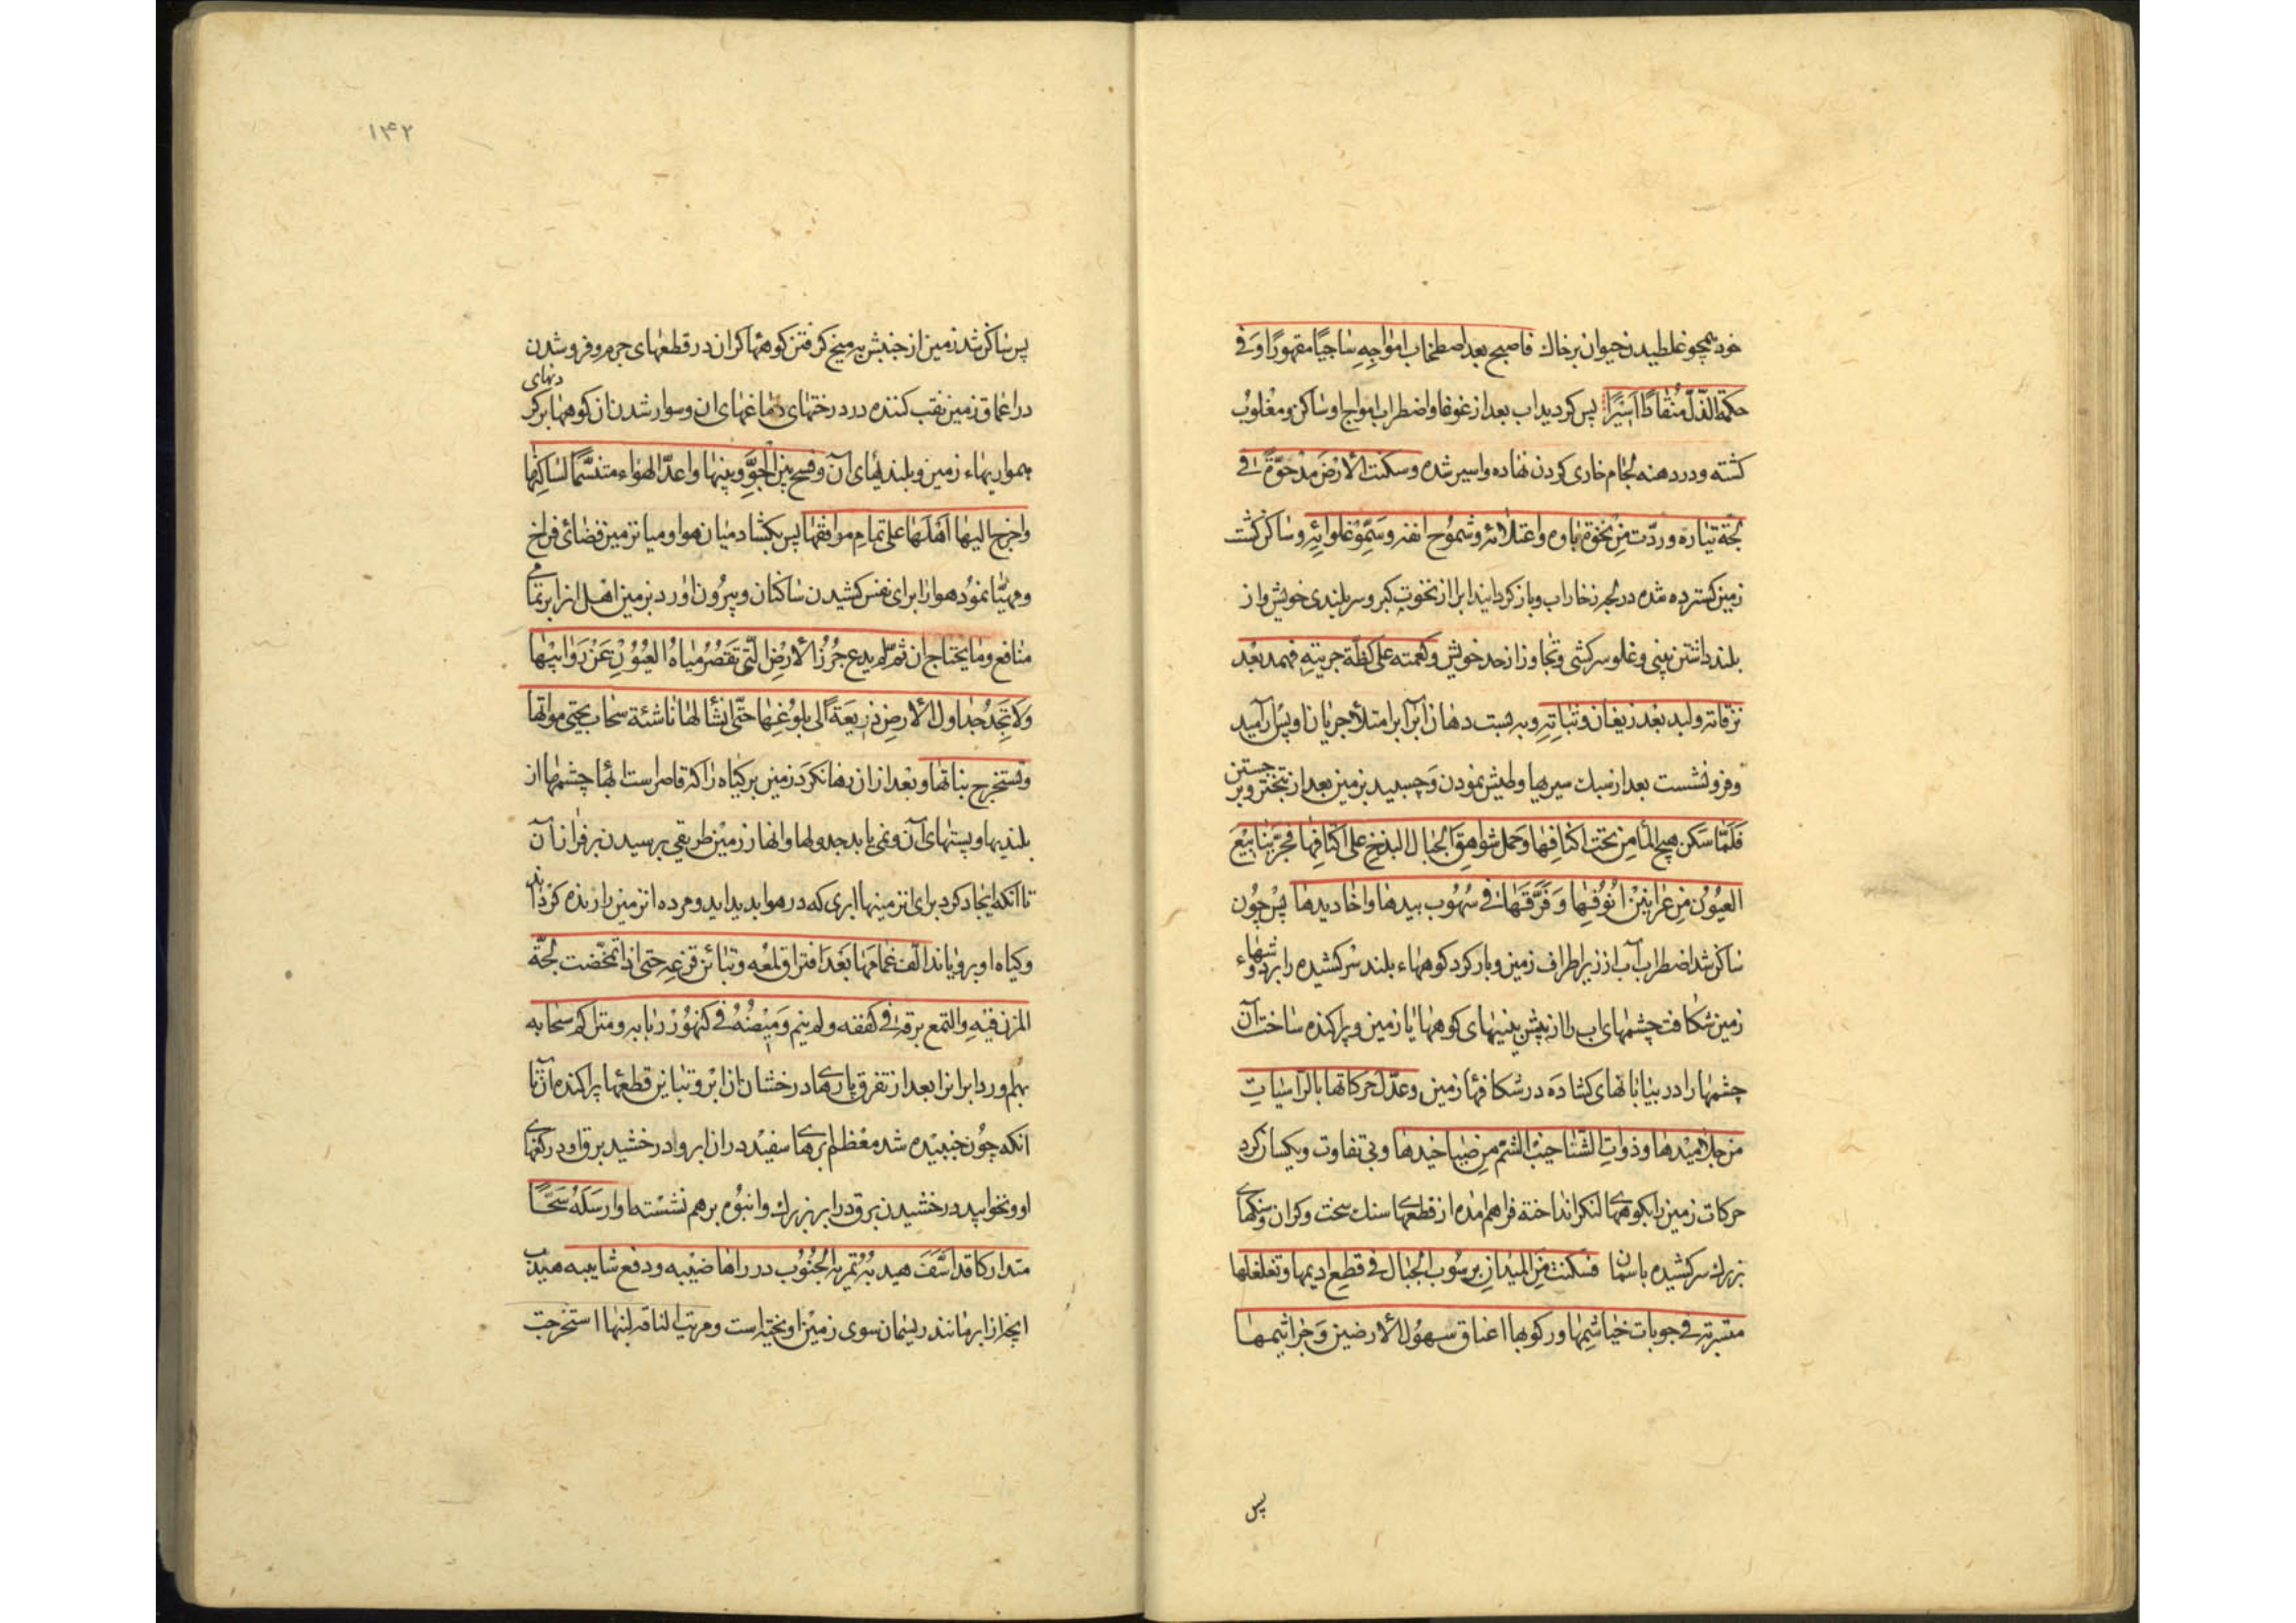 خود همچو غلطیدن حیوان بر خاک فاصبح بعد اصطخاب امواجه ساجیًا مقهورًا و فی
حکمة الذّلّ منقادًا اسیرًا پس کردید اب بعد از غوغا و اضطراب امواج او ساکن و مغلوب
کشته و در دهنه لجام خاری کردن نهاده و اسیر شده و سکنت الارض مدحوّةً فی
لجّة تیّاره و ردّت من نخوة باوه و اعتلائه و شموخ انفه و سموّ غلوائه و ساکن کشت
زمین کسترده شده در لجه زخار اب و باز کردانید ابرا از نخوت کبر و سربلندی خویش و از
بلند داشتن بینی و غلو سرکشی و تجاوز از حد خویش و کعمته علی کظّة جریته فهمد بعد
نزقاته و لبد بعد زیفان وثباته و به بست دهان ابرا برامتلاء جریان او پس آرامید
و فرو نشست بعد از سبک سیریها و طیش نمودن و چسبید بزمین بعد از تبختر و بر جستن
فلمّا سکن هیج الماء من تحت اکنافها و حمل شواهق الجبال البذخ علی اکتافها فجّر ینابیع
العیون من عرانین انوفها و فرّقها فی سهوب بیدها و اخادیدها پس چون
ساکن شد اضطراب آب از زیر اطراف زمین و بار کرد کوههاء بلند سرکشیده را بر دوشهاء
زمین شکافت چشمهای اب را از پیش بینیهای کوهها یا زمین و پراکنده ساخت آن
چشمها را در بیابانهای کشاده در شکافها زمین و عدّل حرکاتها بالرّاسیات
من جلامیدها و ذوات الشناخیب الشم من صیاخیدها و بی تفاوت و یکسان کرد
حرکات زمین را بکوههای لنکر انداخته فراهم امده از قطعهای سنک سخت و کران و سنکهای
بزرک سرکشیده باسمان فسکنت من المیدان برسوب الجبال فی قطع ادیمها و تغلغلها
متسربة فی جوبات خیاشیمها و رکوبها اعناق سهول الارضین و جراثیمها
پس
۱۴۲
پس ساکن شد زمین از جنبش به میخ کرفتن کوهها کران در قطعهای جرم و فرو شدن
در اعماق زمین نقب کننده در درختهای دماغهای ان و سوار شدن ان کوهها بر کردنهای
همواریهاء زمین و بلندیهای آن و فسح بین الجوّ و بینها و اعدّ الهواء متنسّمًا لساکنها
و اخرج الیها اهلها علی تمام مرافقها پس بکشاد میان هوا و میان زمین فضائی فراخ
و مهیّا نمود هوا را برای نفس کشیدن ساکنان و بیرون اورد بزمین اهل انرا بر تمامی
منافع و ما یحتاج ان ثم لم یدع جرز الارض الّتی تقصر میاه العیون عن روابیها
و لا تجد جداول الارض ذریعةً الی بلوغها حتّی انشأ لها ناشئة سحاب یحیی مواتها
و تستخرج نباتها و بعد از ان رها نکرد زمین بر کیاه را که قاصر است ابهای چشمها از
بلندیها و پستهای آن و نمی یابد جدولها و انهار زمین طریقی برسیدن بر فراز آن
تا آنکه ایجاد کرد برای انزمینها ابری که در هوا پدید اید و مرده انزمین را زنده کرداند
و کیاه او برویاند الّف غمامها بعد افتراق لمعه و تباین قزعه حتی اذا تمخّضت لجّة
المزن فیه و التمع برقه فی کففه و لم ینم ومیضه فی کنهور ربابه و متراکم سحابه
بهم اورد ابر انرا بعد از تفرق پارهای درخشان از ابر و تباین قطعها پراکنده از آن تا
انکه چون جنبیده شد معظم ابرهای سفید در ان ابر و درخشید برق او در کفهای
او و نخوابید درخشیدن برق در ابر بزرک و انبوه برهم نشسته او ارسله سحًّا
متدارکا قد اسفّ هیدبه تمریه الجنوب درر اهاضیبه و دفع شابیبه هیدب
انچه از ابر مانند ریسمان سوی زمین اویخته است و مریت الناقه لبنها استخرجت